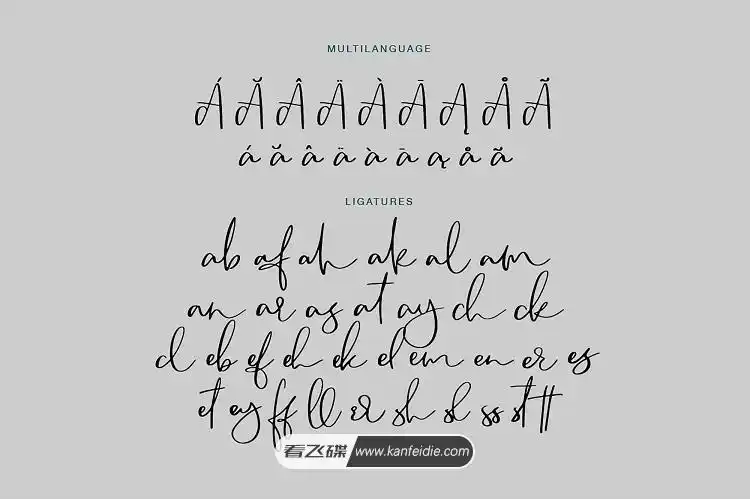 MULTILANGUAGE
Á Ă Â Ä À Ā Ą Å Ã
á ă â ä à ā ą å ã
LIGATURES
ab af ah ak al am
an ar as at ay ch ck
cl eb ef eh ek el em en er es
et ey ff ll or sh sl ss st tt
看飞碟 www.kanfeidie.com